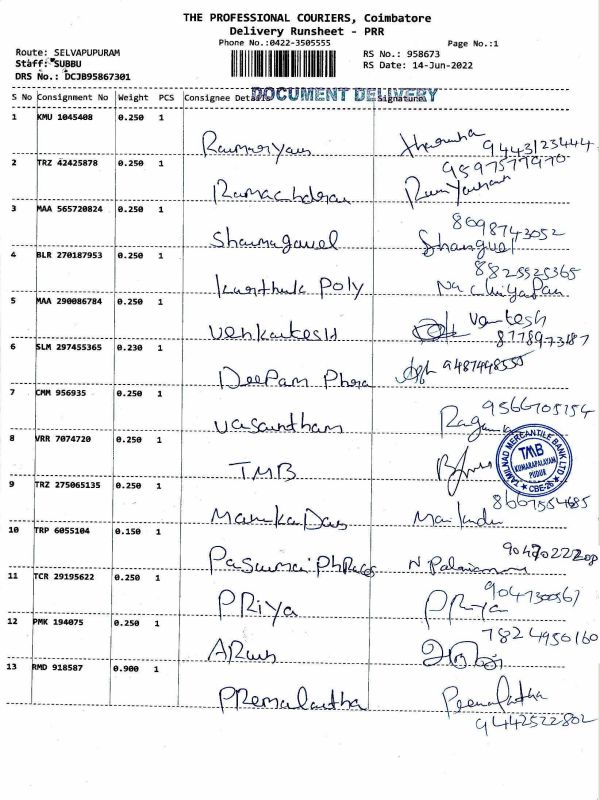 THE PROFESSIONAL COURIERS, Coimbatore
Delivery Runsheet - PRR
Phone No.:0422-3505555
Page No.:1
Route: SELVAPUPURAM
RS No.: 958673
Staff: SUBBU
RS Date: 14-Jun-2022
DRS No.: DCJB95867301
DOCUMENT DELIVERY
S No Consignment No Weight PCS Consignee Details Signature
1 KMU 1045408 0.250 1
9443123444
2 TRZ 42425878 0.250 1
9597577970
3 MAA 565720824 0.250 1
8098743052
Shanmugavel
4 BLR 270187953 0.250 1
8825525365
Karthik Poly Nachiyappan
5 MAA 290086784 0.250 1
Venkatesh
Venkatesh
6 SLM 297455365 0.230 1
Deepam
7 CMM 956935 0.250 1
9566705754
Vasantham
8 VRR 7074720 0.250 1
TMB
TAMILNAD MERCANTILE BANK LTD
TMB
KUMARAPALAYAM
PUDUR
CBE-26
9 TRZ 275065135 0.250 1
8667554685
10 TRP 6055104 0.150 1
11 TCR 29195622 0.250 1
9047300567
PRiya PRiya
12 PMK 194075 0.250 1
7824950160
ARun
13 RMD 918587 0.900 1
Premalatha Premalatha
9442522802